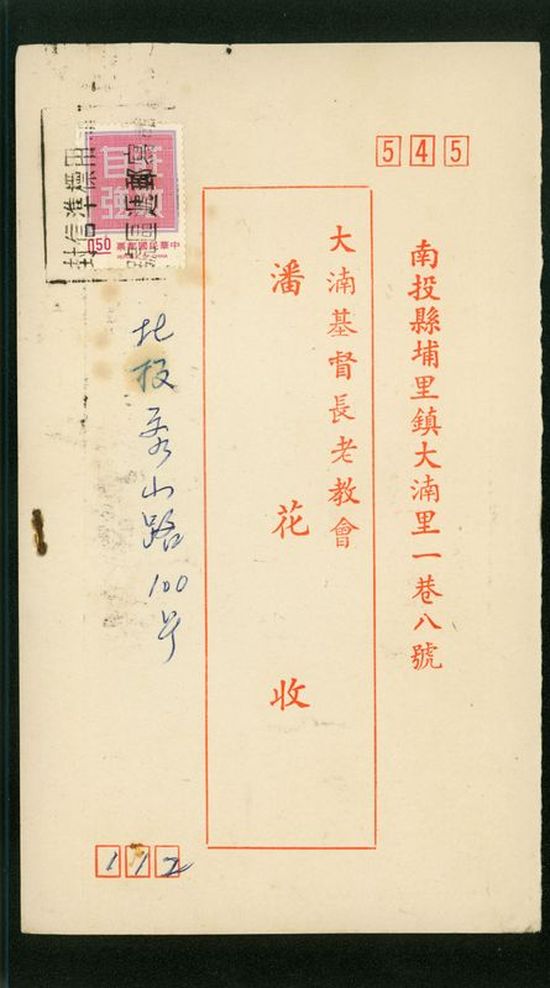 545
南投縣埔里鎮大湳里一巷八號
大湳基督長老教會
潘花 收
莊敬
自強
中華民國郵票
0.50
北投秀山路100号
112